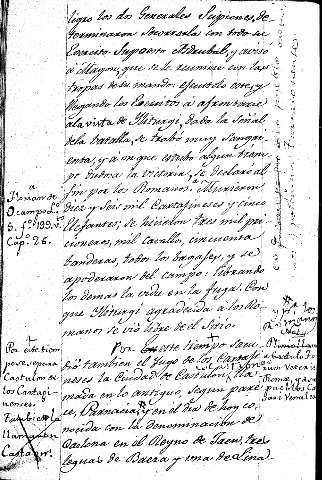 ligro los dos Generales Scipiones, de
terminaron socorrerla con todo su
Exercito. Supolo Asdrubal, y avisó
á Magon, que se le reuniese con las
tropas de su mando: efectuólo este, y
llegando los Exercitos á afrontarse
á la vista de Iliturgi, dada la señal
de la batalla, se trabó muy sangri
enta, y aunque estubo algun tiem
po dudosa la victoria, se declaró al
fin por los Romanos. Murieron
diez y seis mil Cartagineses y cinco
Elefantes; se hicieron tres mil pri
cioneros, mil cavallos, cincuenta
banderas, todos los bagages, y se
apoderaron del campo: librando
los demas la vida en la fuga. Con
que Iliturgi agradecida á los Ro
manos, se vió libre de el Sitio.
Por este tiempo sacu
dió tambien el Jugo de los Cartagi
neses la Ciudad de Castulon, lla
mada en lo antiguo, segun pare
ce, y en el dia de hoy co
nocida con la denominacion de
Cazlona en el Reyno de Jaen, tres
leguas de Baeza y una de Lina
a
Florian de
Ocampo Lib.
5. fº 199. v.to
Cap. 26.
Por este tiem
po se separa
Castulo de
los Cartagi
nenses.
Tambien la
llamaron
Castaon